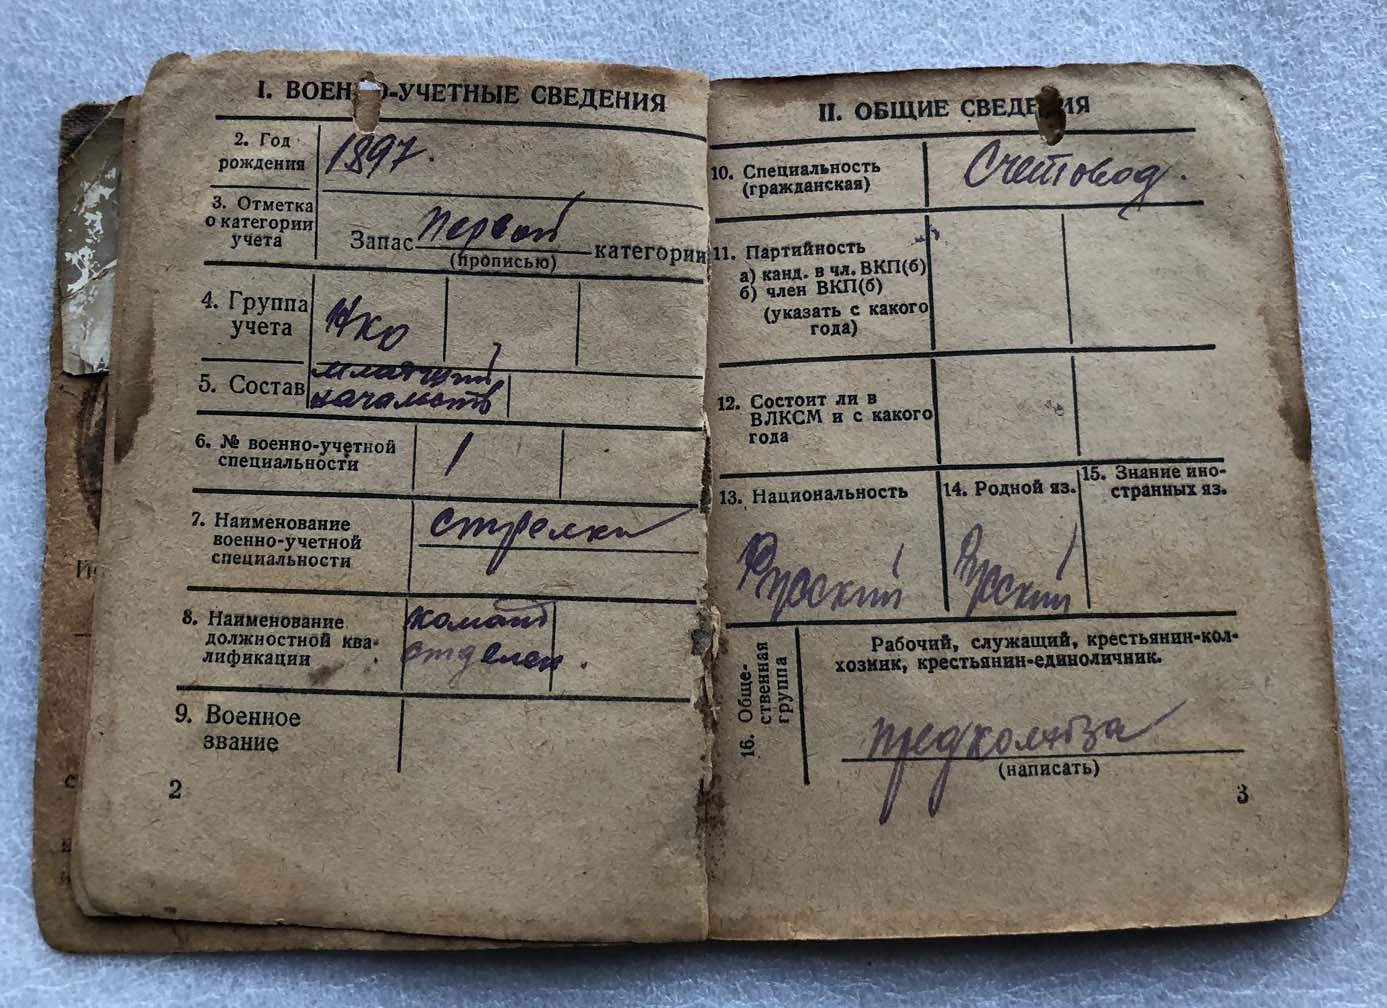 I. ВОЕННО-УЧЕТНЫЕ СВЕДЕНИЯ
2. Год
рождения
1897.
3. Отметка
о категории
учета
Запас первой категории
(прописью)
4. Группа
учета
5. Состав
младший
начальств
6. № военно-учетной
специальности
1
7. Наименование
военно-учетной
специальности
стрелки
8. Наименование
должностной ква-
лификации
команд
отделен.
9. Военное
звание
2
II. ОБЩИЕ СВЕДЕНИЯ
10. Специальность
(гражданская)
Счетовод.
11. Партийность
а) канд. в чл. ВКП(б)
б) член ВКП(б)
(указать с какого
года)
12. Состоит ли в
ВЛКСМ и с какого
года
13. Национальность
Русский
14. Родной яз.
Русский
15. Знание ино-
странных яз.
16. Обще-
ственная
группа
Рабочий, служащий, крестьянин-кол-
хозник, крестьянин-единоличник.
предколхоза
(написать)
3